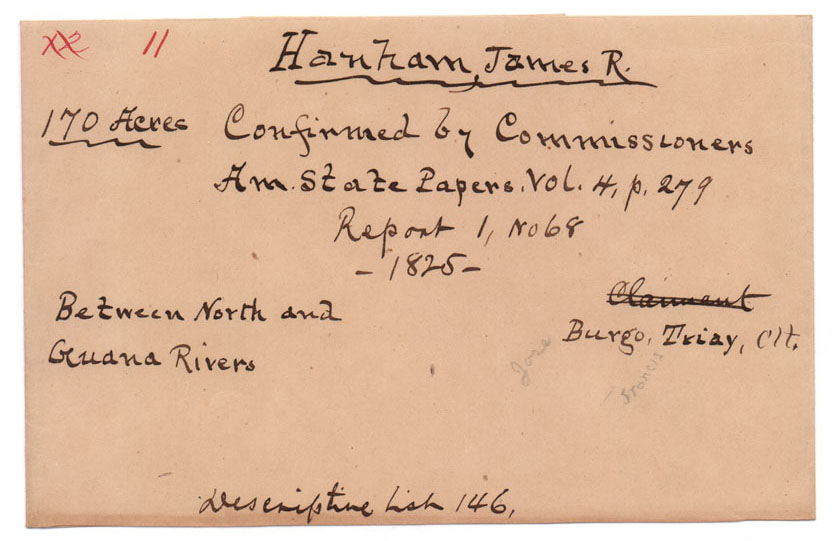 XX 11
Hanham, James R.
170 Acres Confirmed by Commissioners
Am. State Papers. Vol. 4, p. 279
Report 1, No 68
- 1825 -
Between North and
Guana Rivers
Claiment
Burgo, Triay, Clt.
Jose
Francis
Descriptive List 146.